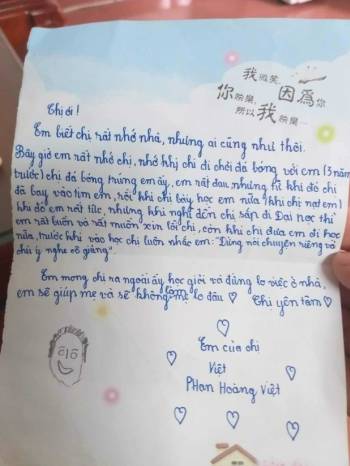 我微笑,
因為你
你快樂,
所以我快樂…
Chị ơi!
Em biết chị rất nhớ nhà, nhưng ai cũng như thôi.
Bây giờ em rất nhớ chị, nhớ khi chị đi chơi đá bóng với em (3 năm
trước) chị đá bóng trúng em ấy, em rất đau, nhưng từ khi đó chị
đã bay vào tim em, rồi khi chị bảy học em nữa (khi chị nạt em)
khi đó em rất tức, nhưng khi nghĩ đến chị sắp đi Đại học thì
em rất buồn và rất muốn xin lỗi chị, còn khi chị đưa em đi học
nữa, trước khi vào học chị luôn nhắc em: "Đừng nói chuyện riêng và
chú ý nghe cô giảng".
Em mong chị ra ngoài ấy học giỏi và đừng lo việc ở nhà,
em sẽ giúp mẹ và sẽ không làm mẹ lo đâu ♡ Chị yên tâm ♡
Em của chị
Việt
Phan Hoàng Việt